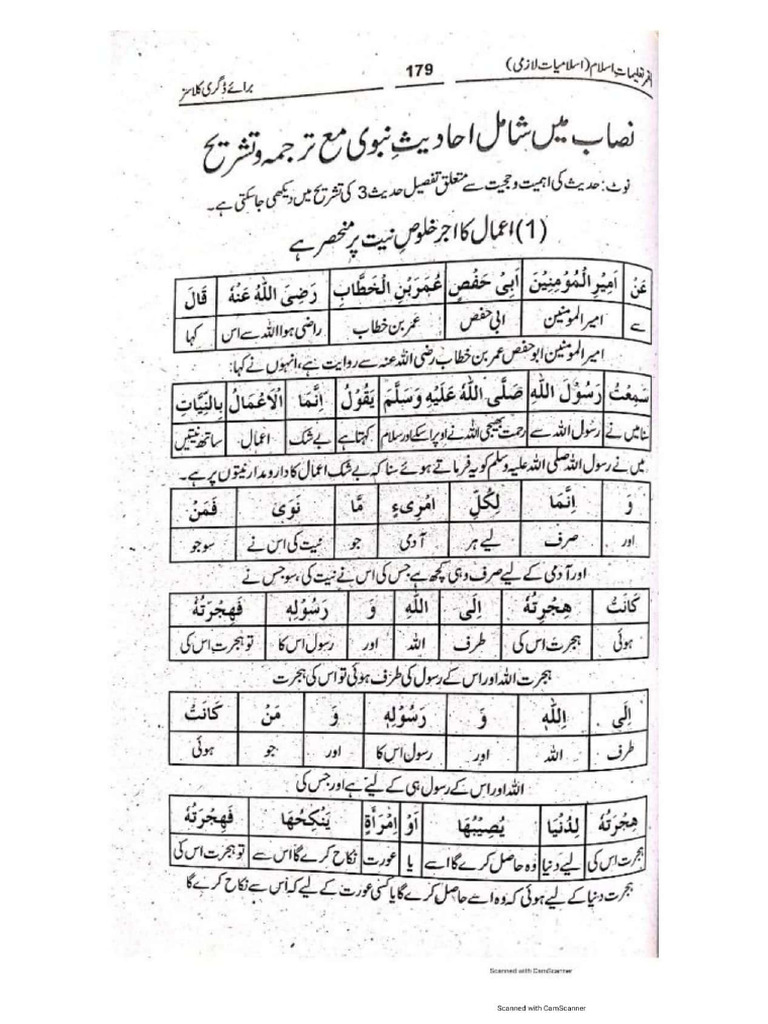 تعلیماتِ اسلام (اسلامیات لازمی)
179
برائے ڈگری کلاسز
نصاب میں شامل احادیثِ نبوی مع ترجمہ و تشریح
نوٹ: حدیث کی اہمیت و حجیت سے متعلق تفصیل حدیث 3 کی تشریح میں دیکھی جا سکتی ہے۔
(1) اعمال کا اجر خلوصِ نیت پر منحصر ہے
عَنْ اَمِیْرِ الْمُؤْمِنِیْنَ اَبِیْ حَفْصٍ عُمَرَبْنِ الْخَطَّابِ رَضِیَ اللّٰہُ عَنْہُ قَالَ
سے امیر المومنین ابی حفص عمر بن خطاب راضی ہوا اللہ سے اس کہا
امیر المومنین ابو حفص عمر بن خطاب رضی اللہ عنہ سے روایت ہے، انہوں نے کہا:
سَمِعْتُ رَسُوْلَ اللّٰہِ صَلَّی اللّٰہُ عَلَیْہِ وَسَلَّمَ یَقُوْلُ اِنَّمَا الْاَعْمَالُ بِالنِّیَّاتِ
سنا میں نے رسول اللہ سے رحمت بھیجی اللہ نے اوپر اسکے اور سلام کہتا ہے بے شک اعمال ساتھ نیتیں
میں نے رسول اللہ صلی اللہ علیہ وسلم کو یہ فرماتے ہوئے سنا کہ بے شک اعمال کا دارومدار نیتوں پر ہے۔
وَ اِنَّمَا لِکُلِّ امْرِیءٍ مَّا نَوٰی فَمَنْ
اور صرف لیے ہر آدمی جو نیت کی اس نے سو جو
اور آدمی کے لیے صرف وہی کچھ ہے جس کی اس نے نیت کی، سو جس نے
کَانَتْ ھِجْرَتُہٗ اِلَی اللّٰہِ وَ رَسُوْلِہٖ فَھِجْرَتُہٗ
ہوئی ہجرت اس کی طرف اللہ اور رسول اس کا تو ہجرت اس کی
ہجرت اللہ اور اس کے رسول کی طرف ہوئی تو اس کی ہجرت
اِلَی اللّٰہِ وَ رَسُوْلِہٖ وَ مَنْ کَانَتْ
طرف اللہ اور رسول اس کا اور جو ہوئی
اللہ اور اس کے رسول ہی کے لیے ہے اور جس کی
ھِجْرَتُہٗ لِدُنْیَا یُصِیْبُھَا اَوْ اِمْرَأَۃٍ یَنْکِحُھَا فَھِجْرَتُہٗ
ہجرت اس کی لیے دنیا وہ حاصل کرے گا اسے یا عورت نکاح کرے گا اس سے تو ہجرت اس کی
ہجرت دنیا کے لیے ہوئی کہ وہ اسے حاصل کرے گا یا کسی عورت کے لیے کہ اس سے نکاح کرے گا
Scanned with CamScanner
Scanned with CamScanner